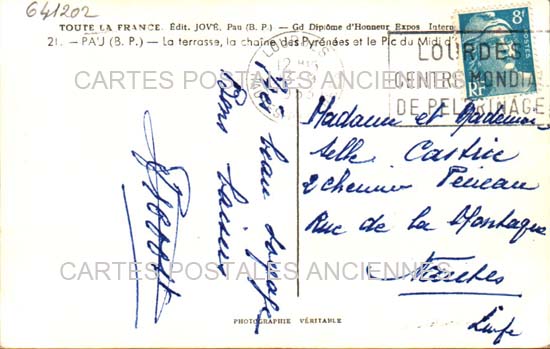 641202
TOUTE LA FRANCE. Édit. JOVÉ, Pau (B. P.) — Gd Diplôme d'Honneur Expos Intern
21. — PAU (B. P.) — La terrasse, la chaîne des Pyrénées et le Pic du Midi d
8F
POSTES
RF
LOURDES
CENTRE MONDIA
DE PELERINAGE
CARTES POSTALES ANCIENNES
Très beau voyage
Bons baisers
Madame et Mademoi-
selle Castric
2 chemin
Rue de la Montagne
Nantes
CARTES POSTALES ANCIENNES
PHOTOGRAPHIE VÉRITABLE